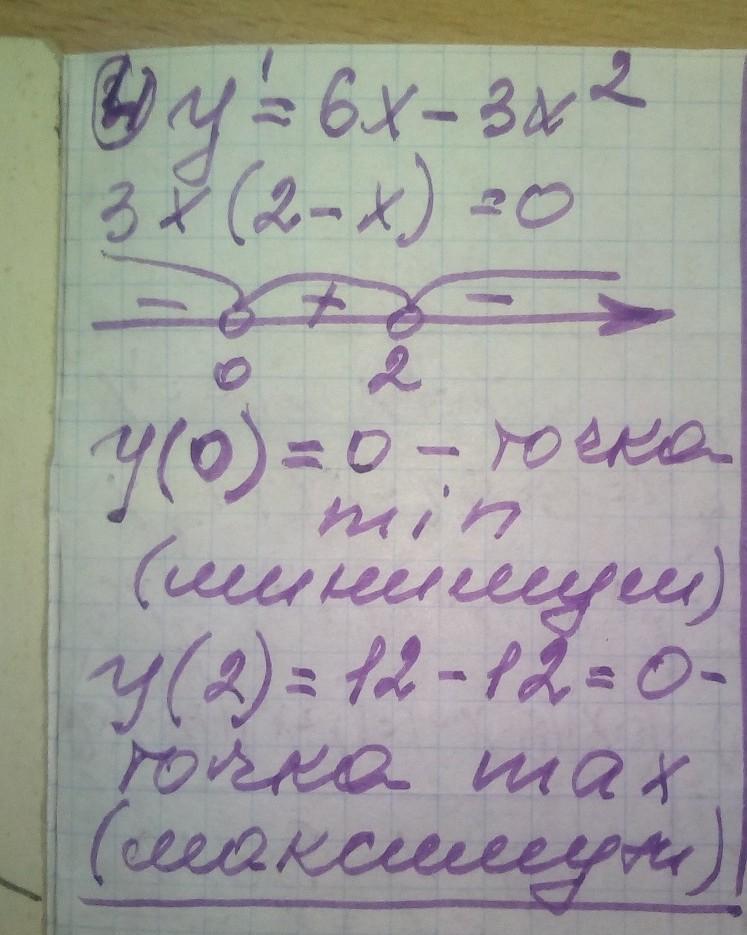 4) y' = 6x - 3x²
3x(2-x) = 0
- + -
0 2
y(0) = 0 - точка
min
(минимум)
y(2) = 12 - 12 = 0 -
точка max
(максимум)